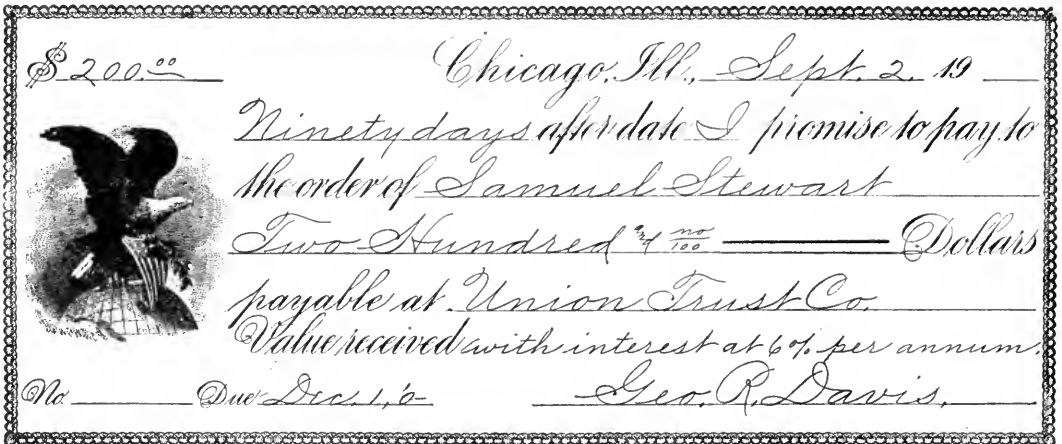 $ 200.00 Chicago, Ill., Sept. 2, 19
Ninety days after date I promise to pay to
the order of Samuel Stewart
Two Hundred & no/100 Dollars
payable at Union Trust Co.
Value received with interest at 6% per annum.
No Due Dec. 1, Geo. R. Davis.